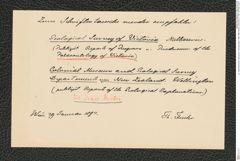 Zum Schriftentausche werden empfohlen:
Geological Survey of Victoria Melbourne.
(Publish Report of Progress u. Prodromus of the
Palaeontology of Victoria)
Colonial Museum and Geological Survey
Department New Zealand. Wellington
(publish Reports of the Geological Explorations)
Wien 29 Januar
Th. Fuchs